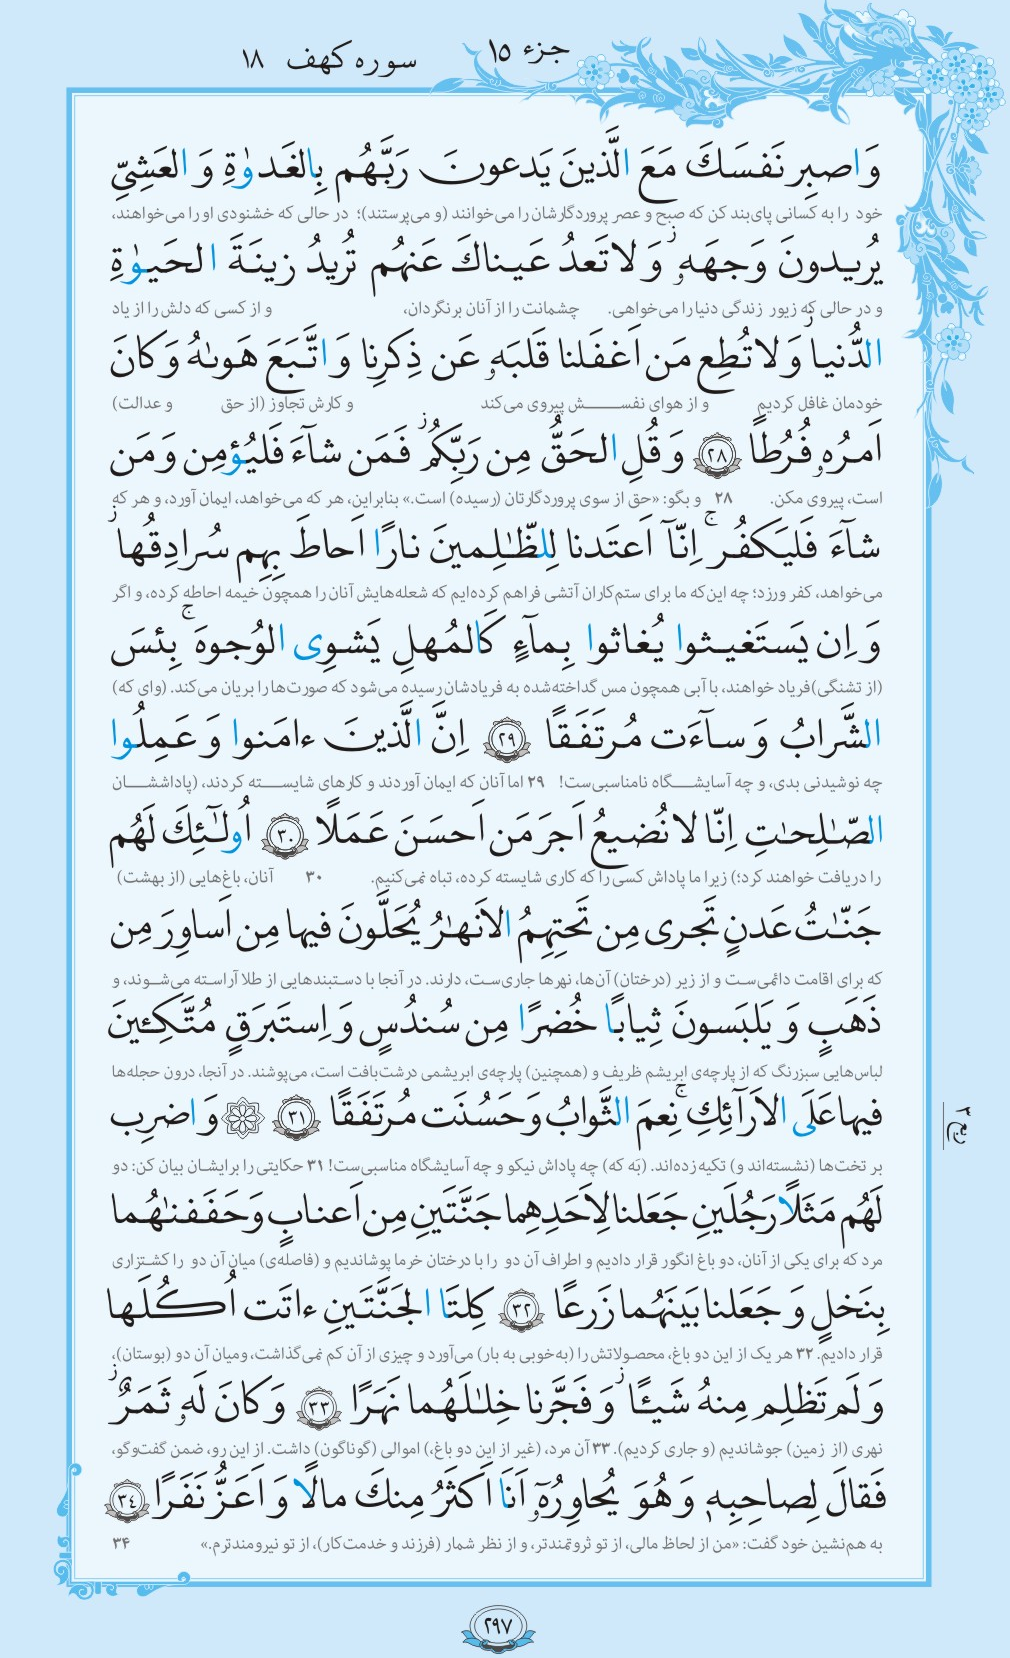 جزء ۱۵
سوره کهف ۱۸
وَ اصبِر نَفسَكَ مَعَ الَّذينَ يَدعونَ رَبَّهُم بِالغَدوٰةِ وَ العَشِىِّ
خود را به کسانی پای‌بند کن که صبح و عصر پروردگارشان را می‌خوانند (و می‌پرستند)؛ در حالی که خشنودی او را می‌خواهند،
يُريدونَ وَجهَهۥ ۖ وَ لا تَعدُ عَيناكَ عَنهُم تُريدُ زينَةَ الحَيوٰةِ
و در حالی که زیور زندگی دنیا را می‌خواهی. چشمانت را از آنان برنگردان، و از کسی که دلش را از یاد
الدُّنيا ۖ وَ لا تُطِع مَن اَغفَلنا قَلبَهۥ عَن ذِكرِنا وَ اتَّبَعَ هَوىٰهُ وَ كانَ
خودمان غافل کردیم و از هوای نفسش پیروی می‌کند و کارش تجاوز (از حق و عدالت)
اَمرُهۥ فُرُطًا ۲۸ وَ قُلِ الحَقُّ مِن رَبِّكُم ۖ فَمَن شآءَ فَليُؤمِن وَ مَن
است، پیروی مکن. ۲۸ و بگو: «حق از سوی پروردگارتان (رسیده) است.» بنابراین، هر که می‌خواهد، ایمان آورد، و هر که
شآءَ فَليَكفُر ۚ اِنّآ اَعتَدنا لِلظّٰلِمينَ نارًا اَحاطَ بِهِم سُرادِقُها ۖ
می‌خواهد، کفر ورزد؛ چه این‌که ما برای ستم‌کاران آتشی فراهم کرده‌ایم که شعله‌هایش آنان را همچون خیمه احاطه کرده، و اگر
وَ اِن يَستَغيثوا يُغاثوا بِمآءٍ كَالمُهلِ يَشوِى الوُجوهَ ۚ بِئسَ
(از تشنگی) فریاد خواهند، با آبی همچون مس گداخته‌شده به فریادشان رسیده می‌شود که صورت‌ها را بریان می‌کند. (وای که)
الشَّرابُ وَ سآءَت مُرتَفَقًا ۲۹ اِنَّ الَّذينَ ءامَنوا وَ عَمِلُوا
چه نوشیدنی بدی، و چه آسایشگاه نامناسبی‌ست! ۲۹ اما آنان که ایمان آوردند و کارهای شایسته کردند، (پاداششان
الصّٰلِحٰتِ اِنّا لا نُضيعُ اَجرَ مَن اَحسَنَ عَمَلًا ۳۰ اُولٰٓئِكَ لَهُم
را دریافت خواهند کرد؛) زیرا ما پاداش کسی را که کاری شایسته کرده، تباه نمی‌کنیم. ۳۰ آنان، باغ‌هایی (از بهشت)
جَنّٰتُ عَدنٍ تَجرى مِن تَحتِهِمُ الاَنهٰرُ يُحَلَّونَ فيها مِن اَساوِرَ مِن
که برای اقامت دائمی‌ست و از زیر (درختان) آن‌ها، نهرها جاری‌ست، دارند. در آنجا با دستبندهایی از طلا آراسته می‌شوند، و
ذَهَبٍ وَ يَلبَسونَ ثِيابًا خُضرًا مِن سُندُسٍ وَ اِستَبرَقٍ مُتَّكِـٔينَ
لباس‌هایی سبزرنگ که از پارچه‌ی ابریشم ظریف و (همچنین) پارچه‌ی ابریشمی درشت‌بافت است، می‌پوشند. در آنجا، درون حجله‌ها
فيها عَلَى الاَرآئِكِ ۚ نِعمَ الثَّوابُ وَ حَسُنَت مُرتَفَقًا ۳۱ وَ اضرِب
بر تخت‌ها (نشسته‌اند و) تکیه زده‌اند. (به که) چه پاداش نیکو و چه آسایشگاه مناسبی‌ست! ۳۱ حکایتی را برایشان بیان کن: دو
لَهُم مَثَلًا رَجُلَينِ جَعَلنا لِاَحَدِهِما جَنَّتَينِ مِن اَعنابٍ وَ حَفَفنٰهُما
مرد که برای یکی از آنان، دو باغ انگور قرار دادیم و اطراف آن دو را با درختان خرما پوشاندیم و (فاصله‌ی) میان آن دو را کشتزاری
بِنَخلٍ وَ جَعَلنا بَينَهُما زَرعًا ۳۲ كِلتَا الجَنَّتَينِ ءاتَت اُكُلَها
قرار دادیم. ۳۲ هر یک از این دو باغ، محصولاتش را (به‌خوبی به بار) می‌آورد و چیزی از آن کم نمی‌گذاشت، ومیان آن دو (بوستان)،
وَ لَم تَظلِم مِنهُ شَيـًٔا ۖ وَ فَجَّرنا خِلٰلَهُما نَهَرًا ۳۳ وَ كانَ لَهۥ ثَمَرٌ ۖ
نهری (از زمین) جوشاندیم (و جاری کردیم). ۳۳ آن مرد، (غیر از این دو باغ،) اموالی (گوناگون) داشت. از این رو، ضمن گفت‌وگو،
فَقالَ لِصاحِبِهۦ وَ هُوَ يُحاوِرُهۥٓ اَنَا اَكثَرُ مِنكَ مالًا وَ اَعَزُّ نَفَرًا ۳۴
به هم‌نشین خود گفت: «من از لحاظ مالی، از تو ثروتمندتر، و از نظر شمار (فرزند و خدمت‌کار)، از تو نیرومندترم.» ۳۴
۲۹۷